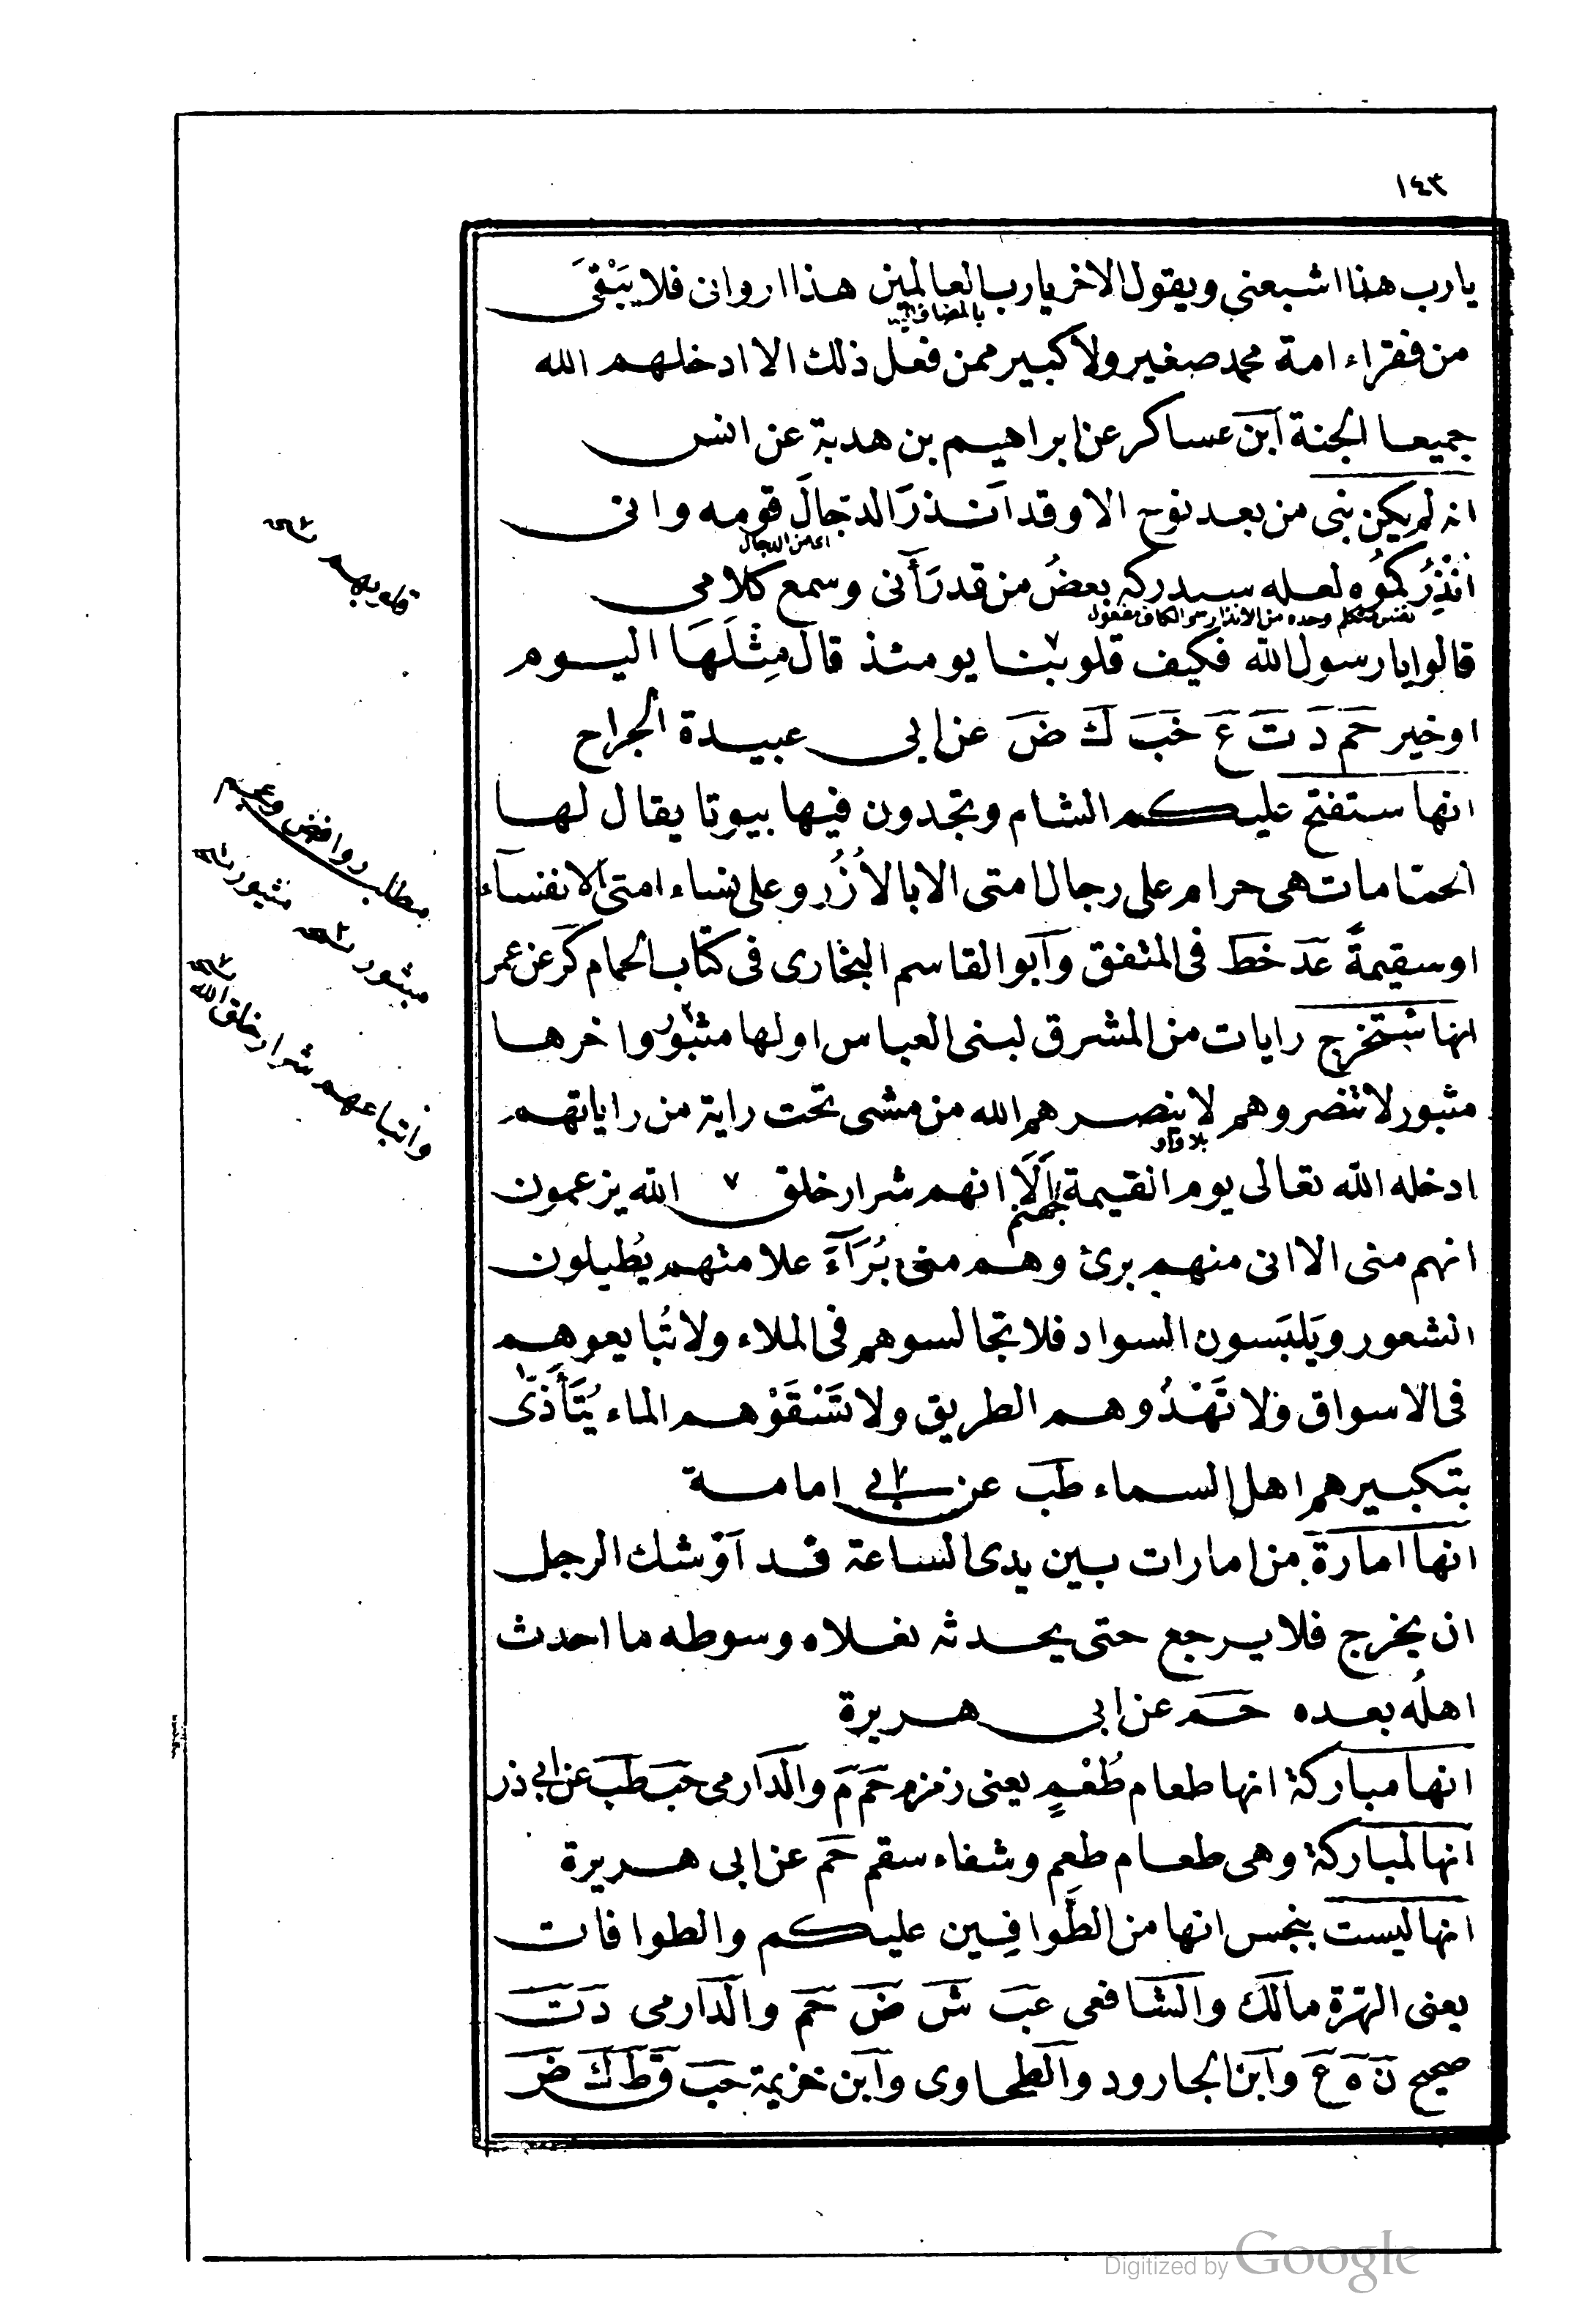 ١٤٣
يارب هذا اشبعني ويقول الاخر يارب العالمين هذا اروانى فلا يَبْقَى
من فقراء امة محمد صغير ولا كبير ممن فعل ذلك الا ادخلهم الله
جميعا الجنة ابن عساكر عن ابراهيم بن هدبة عن انس
انه لم يكن نبى من بعد نوح الا وقد انذرَ الدجالَ قومه وانى
اى من الدجال
اُنْذِرُكموُه لعله سيدركه بعضُ من قد رَأنى وسمع كلامى
نفس متكلم وحده من الانذار والكاف مفعول
قالوا يا رسول الله فكيف قلوبنا يومئذ قال مِثْلَهَا اليوم
او خير حَم دَ تَ عَ حَبَ كَ ضَ عن ابى عبيدة الجراح
انها ستفتح عليكم الشام وتجدون فيها بيوتا يقال لها
الحمامات هى حرام على رجال امتى الا بالاُزُر وعلى نساء امتى الا نفساء
او سقيمةً عَدَ خَطَ فى المتفق وابو القاسم البخارى فى كتاب الحمام كَر عن عمر
انها ستخرج رايات من المشرق لبنى العباس اولها مثبور واخرها
مثبور لا تنصروهم لا ينصرهم الله من مشى تحت راية من راياتهم
بلا واو
ادخله الله تعالى يوم القيمة جهنم اَلَا انهم شرار خلق الله يزعمون
انهم منى الا انى منهم برئ وهم منى بُرَآءَ علامتهم يُطيلون
الشعور ويَلبَسون السواد فلا تجالسوهم فى الملاء ولا تُبايعوهم
فى الاسواق ولا تَهْدُوهم الطريق ولا تَسْقَوْهم الماء يُتَأَذَّى
بتكبيرهم اهل السماء طَبَ عن ابى امامة
انها امارة من امارات بين يدى الساعة قد اَوْشك الرجل
ان يخرج فلا يرجع حتى يحدثه نعلاه وسوطه ما احدث
اهلُه بعده حَم عن ابى هريرة
انها مباركة انها طعام طُعْمٍ يعنى زمزم حَم مَ والدارمى حَبَ طَبَ عن ابى ذر
انها لمباركة وهى طعام طعم وشفاء سقم حَم عن ابى هريرة
انها ليست بنجس انها من الطَّوافِين عليكم والطوافات
يعنى الهرّة مالك والشافعى عَبَ شَ ضَ حَم والدارمى دَ تَ
صحيح نَ هَ عَ وابن الجارود والطحاوى وابن خزيمة حَبَ قَطَ كَ ضَ
قلوبهم
مطلب روافض وغيرهم
مبثور مثيور
واتباعهم شرار خلق الله
Digitized by Google